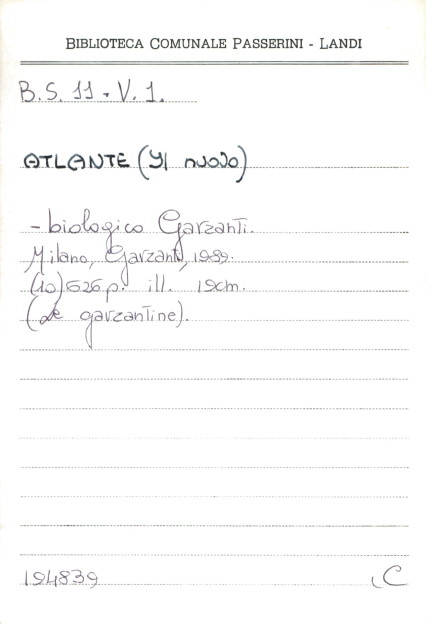 BIBLIOTECA COMUNALE PASSERINI - LANDI
B.S. 11 - V. 1.
ATLANTE (Il nuovo)
- biologico Garzanti.
Milano, Garzanti, 1989.
(10) 526 p. ill. 19cm.
(Le garzantine).
194839
C